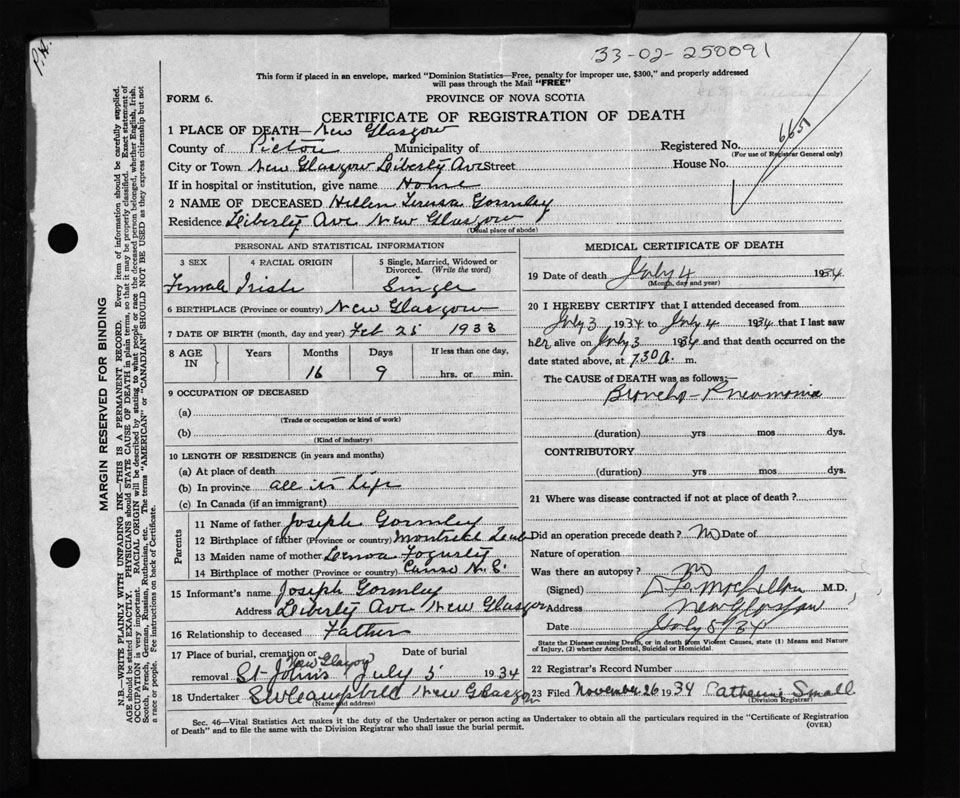 P.H.
33-02-250091
This form if placed in an envelope, marked "Dominion Statistics—Free, penalty for improper use, $300," and properly addressed
will pass through the Mail "FREE"
FORM 6.
PROVINCE OF NOVA SCOTIA
CERTIFICATE OF REGISTRATION OF DEATH
1 PLACE OF DEATH— New Glasgow
County of Pictou Municipality of Registered No. 6650
(For use of Registrar General only)
City or Town New Glasgow Liberty Ave Street House No.
If in hospital or institution, give name Home
2 NAME OF DECEASED Hellen Teresa Gormley
Residence Liberty Ave New Glasgow
(Usual place of abode)
PERSONAL AND STATISTICAL INFORMATION
3 SEX 4 RACIAL ORIGIN 5 Single, Married, Widowed or
Divorced. (Write the word)
Female Irish Single
6 BIRTHPLACE (Province or country) New Glasgow
7 DATE OF BIRTH (month, day and year) Feb 25 1933
8 AGE IN Years Months Days If less than one day,
16 9 hrs. or min.
9 OCCUPATION OF DECEASED
(a)
(Trade or occupation or kind of work)
(b)
(Kind of industry)
10 LENGTH OF RESIDENCE (in years and months)
(a) At place of death
(b) In province all its life
(c) In Canada (if an immigrant)
Parents
11 Name of father Joseph Gormley
12 Birthplace of father (Province or country) Montreal
13 Maiden name of mother Fogurty
14 Birthplace of mother (Province or country) Canso N.S.
15 Informant's name Joseph Gormley
Address Liberty Ave New Glasgow
16 Relationship to deceased Father
17 Place of burial, cremation or Date of burial
New Glasgow
removal St-John's July 5 1934
18 Undertaker S W Campbell New Glasgow
(Name and address)
MEDICAL CERTIFICATE OF DEATH
19 Date of death July 4 1934
(Month, day and year)
20 I HEREBY CERTIFY that I attended deceased from
July 3 1934 to July 4 1934 that I last saw
her alive on July 3 1934 and that death occurred on the
date stated above, at 7 30 a. m.
The CAUSE of DEATH was as follows:—
Broncho-Pneumonia
(duration) yrs mos dys.
CONTRIBUTORY
(duration) yrs mos dys.
21 Where was disease contracted if not at place of death?
Did an operation precede death? No Date of
Nature of operation
Was there an autopsy? No
(Signed) M.D.
Address New Glasgow
Date July 5/34
State the Disease causing Death, or in death from Violent Causes, state (1) Means and Nature
of Injury, (2) whether Accidental, Suicidal or Homicidal.
22 Registrar's Record Number
23 Filed November 26 1934 Catherine Small
(Division Registrar)
Sec. 46—Vital Statistics Act makes it the duty of the Undertaker or person acting as Undertaker to obtain all the particulars required in the "Certificate of Registration
of Death" and to file the same with the Division Registrar who shall issue the burial permit.
(OVER)
MARGIN RESERVED FOR BINDING
N.B.—WRITE PLAINLY WITH UNFADING INK—THIS IS A PERMANENT RECORD. Every item of information should be carefully supplied.
AGE should be stated EXACTLY. PHYSICIANS should STATE CAUSE OF DEATH in plain terms, so that it may be properly classified. Exact statement of
OCCUPATION is very important. RACIAL ORIGIN will be described by stating to what people or race the deceased person belonged, whether English, Irish,
Scotch, French, German, Russian, Ruthenian, etc. The terms "AMERICAN" or "CANADIAN" SHOULD NOT BE USED as they express citizenship but not
a race or people. See instructions on back of Certificate.